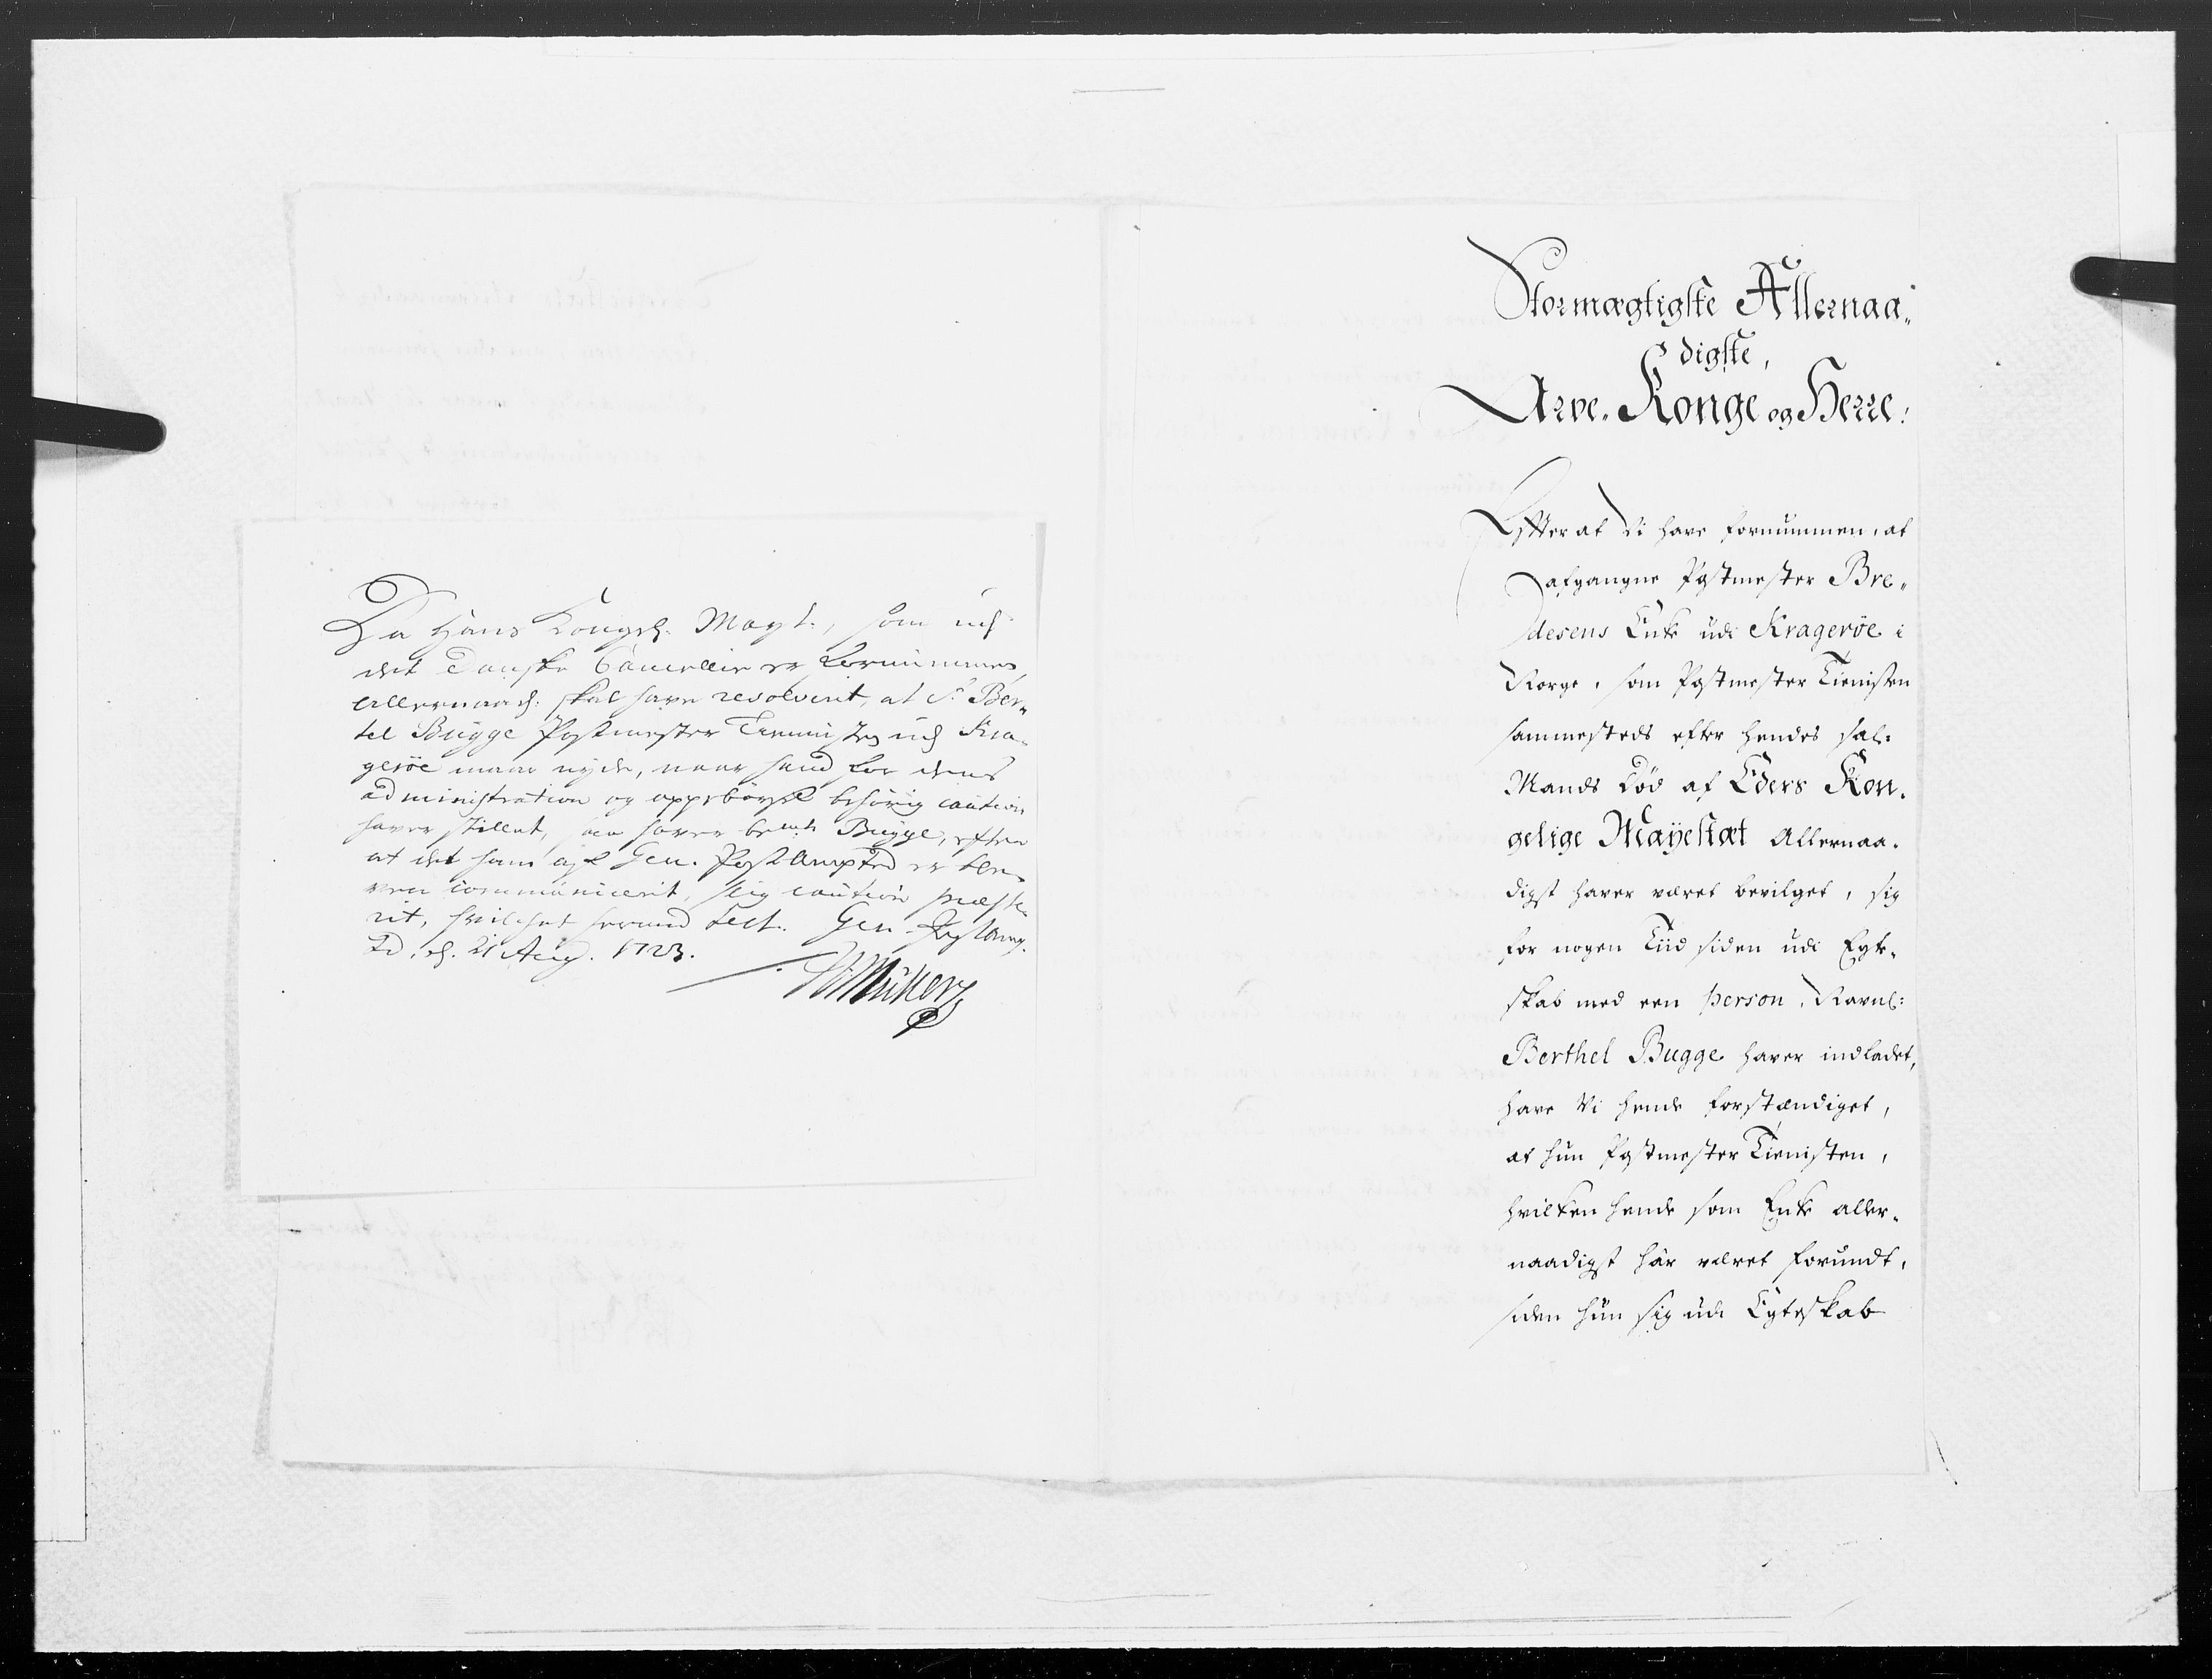 Da Hans Kongel. Mayt., som udj
det Danske Cancellie er fornummen,
allernaad: skal have resolverit, at Sr. Ber„
tel Bugge Postmester Tienisten udj Kra„
gerøe maae nyde, naar hand for dens
administration og oppebørsel behørig caution
haver stillet, saa haver bemte Bugge, efter
at det ham af Gen. Post Ampted er ble„
ven communicerit, slig caution præste„
rit, hvilchet herved test. Gen. Post Amp„
ted, d. 21 Aug. 1723.
Stormægtigste Allernaa„
digste,
Arve„ Konge og Herre!
Effter at Vi have fornummen, at
afgangne Postmester Bre„
desens Enke udi Kragerøe i
Norge, som Postmester Tienisten
sammesteds efter hendes sal:
Mands Død af Eders Kon„
gelige Mayestæt Allernaa„
digst haver været bevilget, sig
for nogen Tiid siden udi Egte„
skab med een person, Navnl:
Berthel Bugge haver indladet,
have Vi hende forstændiget,
at hun Postmester Tienisten,
hvilken hende som Enke aller„
naadigst har været forundt,
siden hun sig udi Egteskab